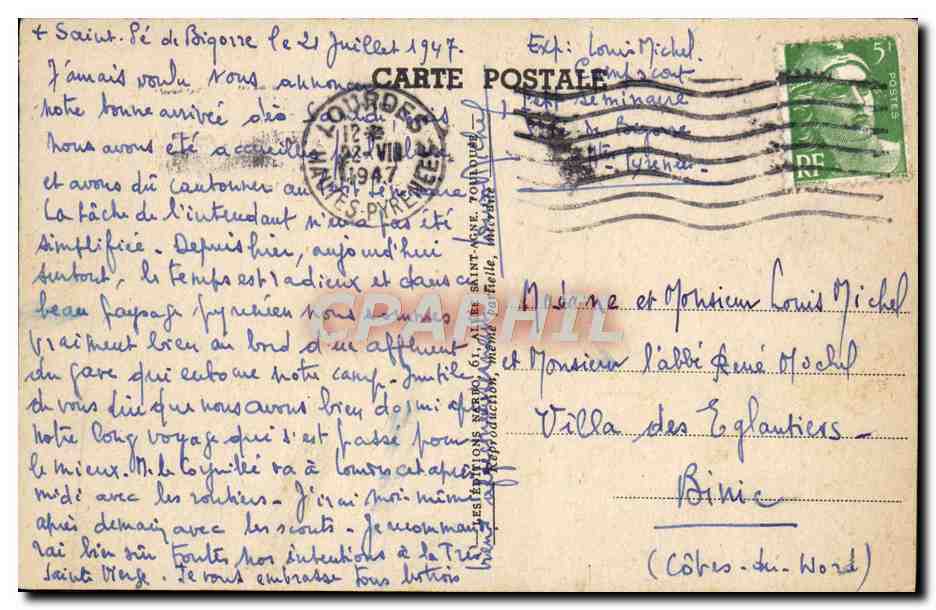 + Saint-Pé de Bigorre le 21 Juillet 1947.
J'amais voulu vous annoncer
notre bonne arrivée dès
nous avons été
et avons dû cantonner au
La tâche de l'intendant n'en a pas été
simplifiée. Depuis hier, aujourd'hui
surtout, le temps est radieux et dans ce
beau paysage pyrénéen nous sommes
vraiment bien au bord d'un affluent
du gave qui entoure notre camp. Inutile
de vous dire que nous avons bien dormi après
notre long voyage qui s'est passé pour
le mieux. M. le va à Lourdes cet après
midi avec les routiers. J'irai moi-même
après demain avec les scouts. Je recomman-
rai bien sûr toutes nos intentions à la Très
Sainte Vierge. Je vous embrasse tous les trois
CARTE POSTALE
LOURDES
12
22-VII
1947
HTES-PYRENEES
Exp: Louis Michel
Camp scout
séminaire
de Bigorre
Htes Pyrénées
5F
POSTES
RF
LES EDITIONS NARBO, 61, ALLEE SAINT-AGNE, TOULOUSE
Reproduction, même partielle, interdite
CPAPHIL
Madame et Monsieur Louis Michel
et Monsieur l'abbé René Michel
Villa des Eglantiers -
Binic
(Côtes-du-Nord)